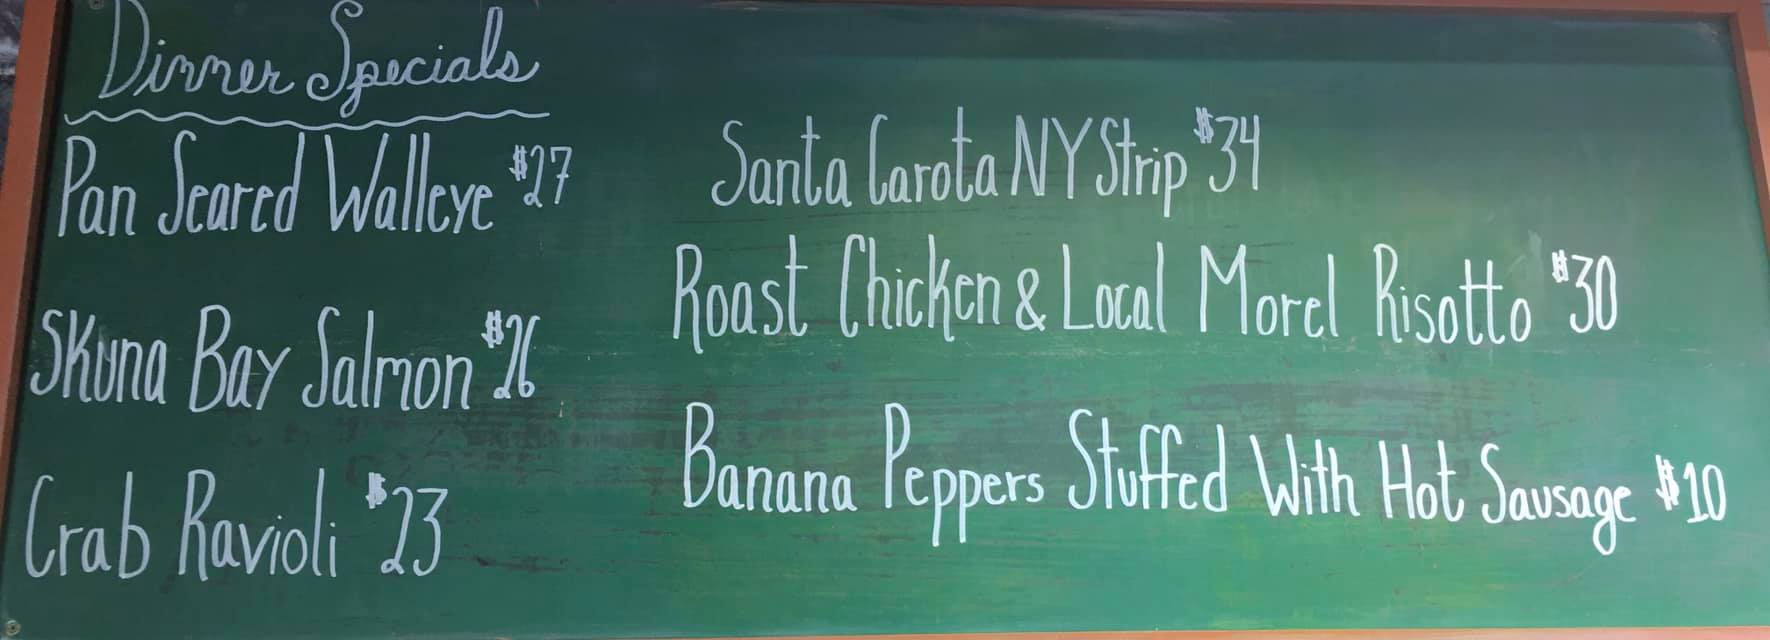 Dinner Specials
Pan Seared Walleye $27
Skuna Bay Salmon $26
Crab Ravioli $23
Santa Carota NY Strip $34
Roast Chicken & Local Morel Risotto $30
Banana Peppers Stuffed With Hot Sausage $10